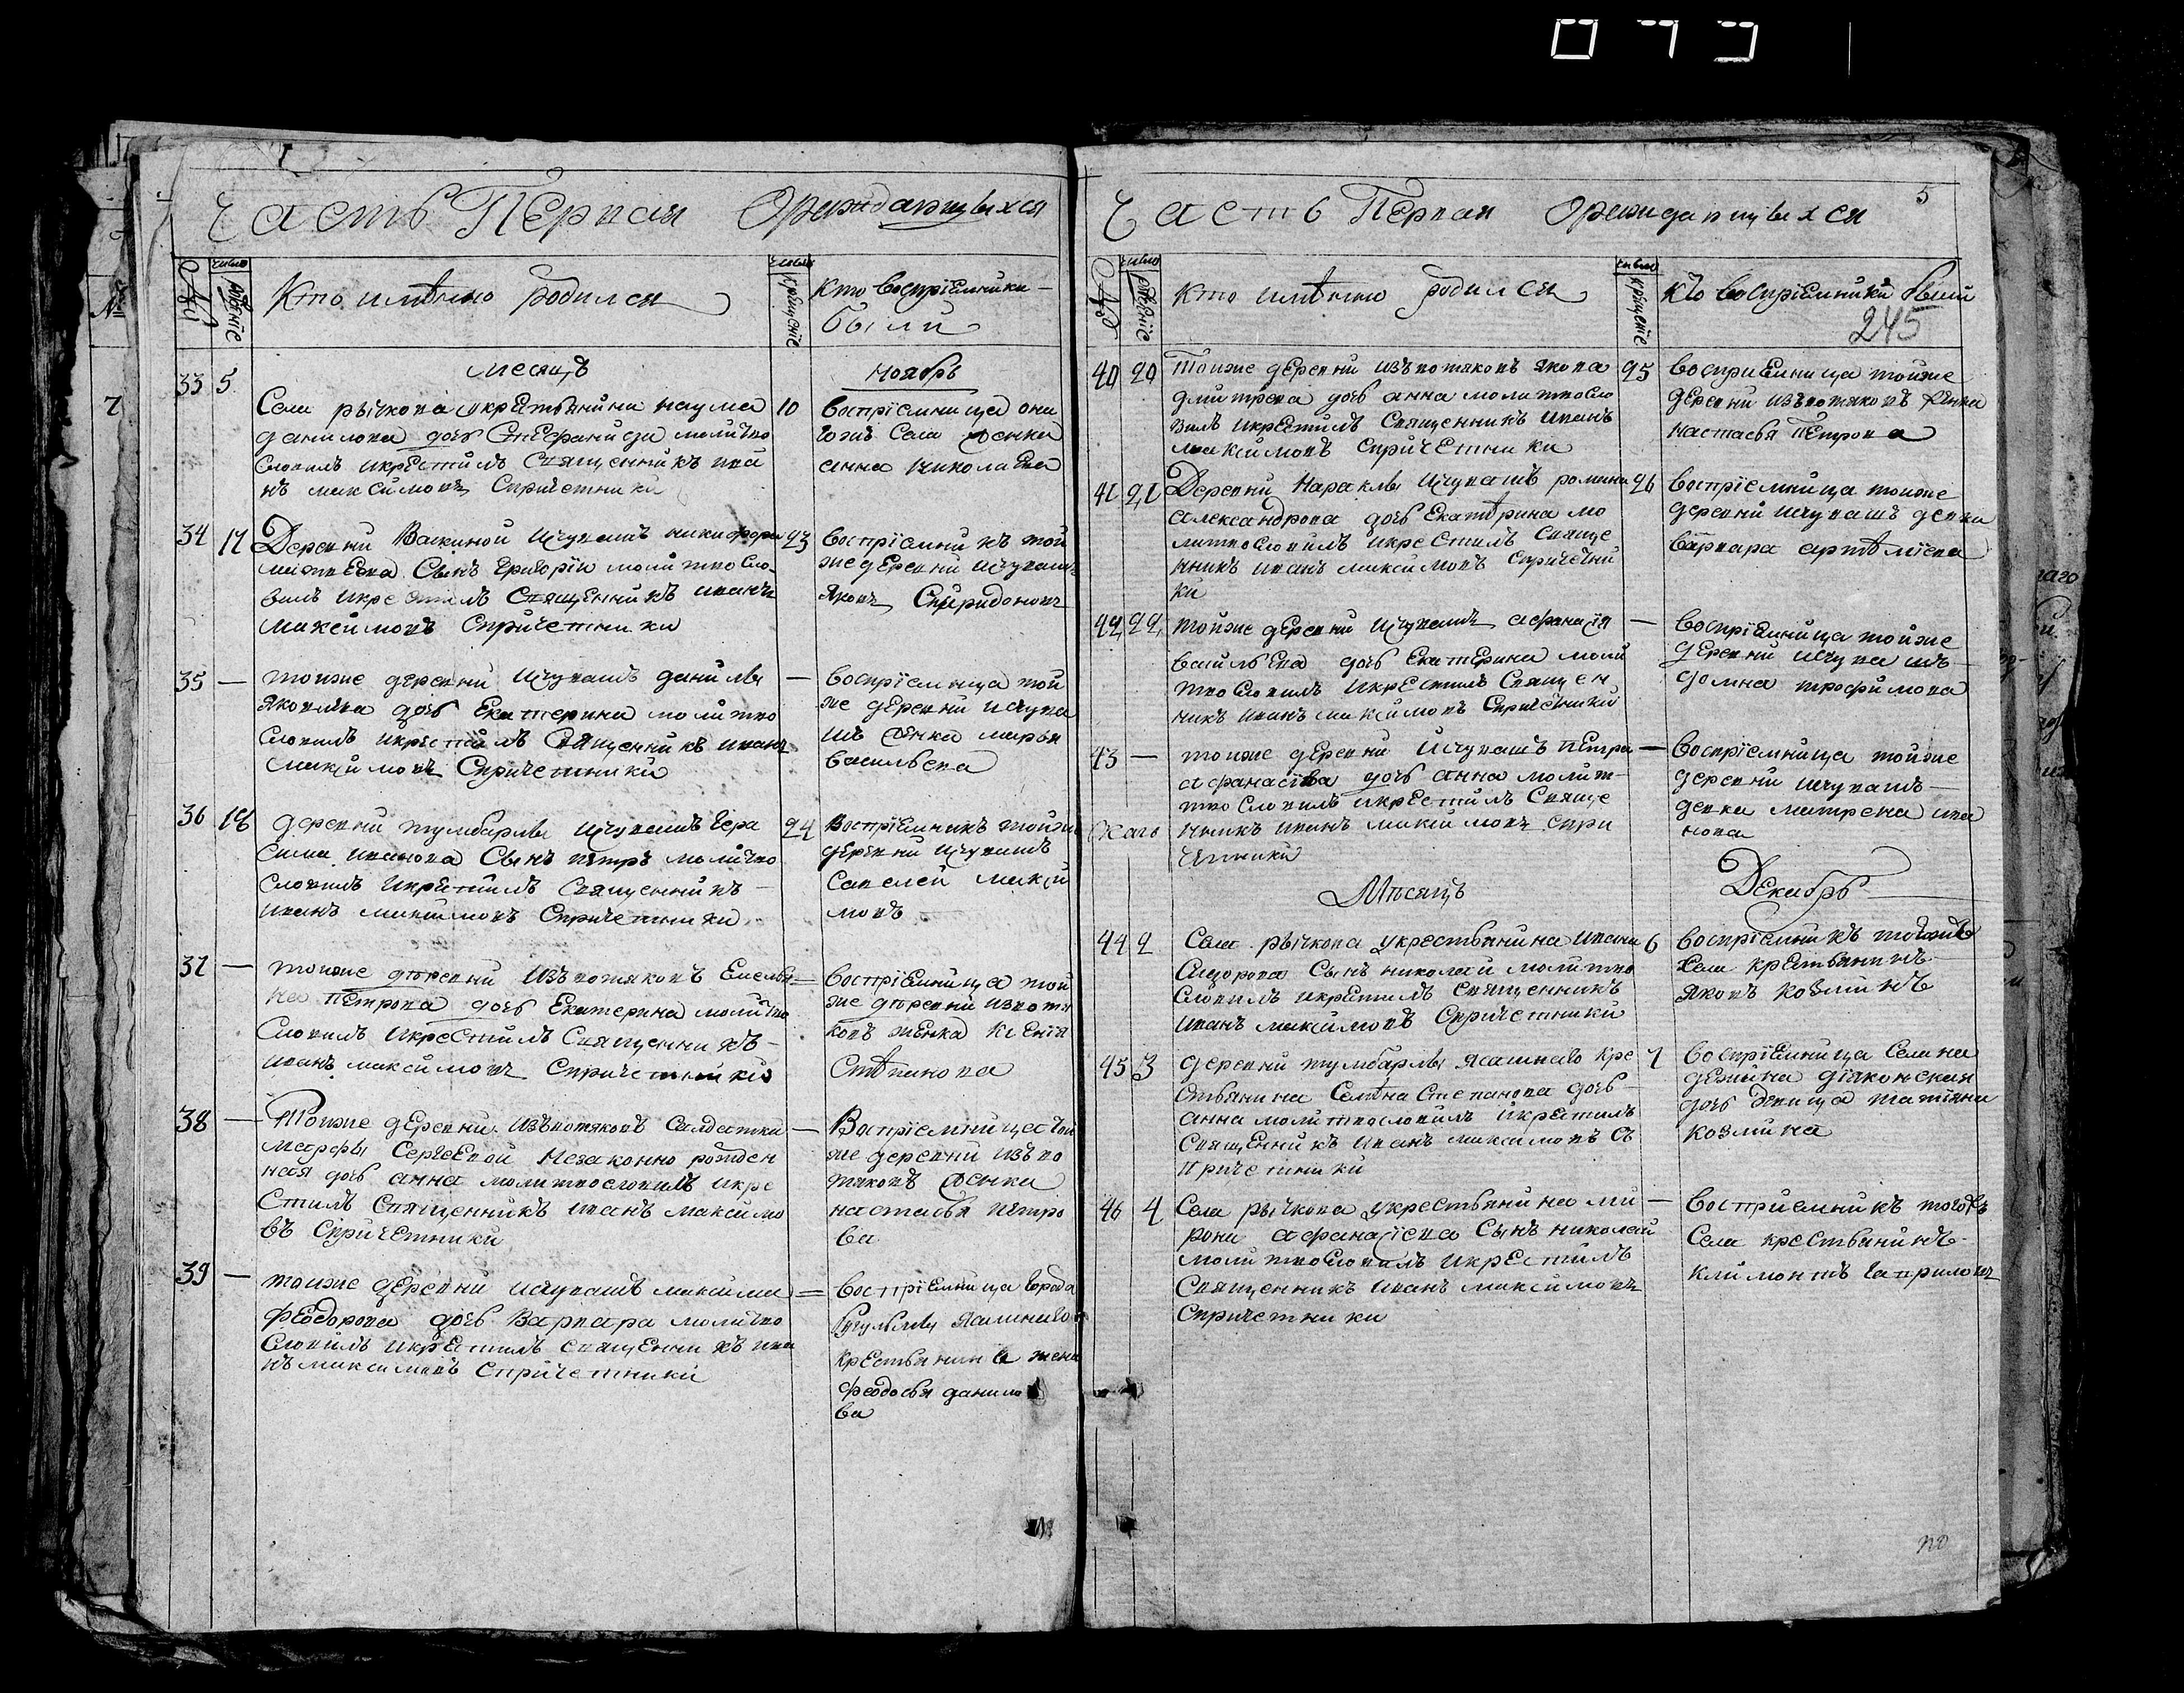 Часть Первая О раждающихся
№
число рождение
Кто имѣнно родился
число крещение
Кто воспріемники
были
месяцъ
ноябрь
33 5
Села рычкова укрестьянина наума
данилова дочь Стефанида молитво
словилъ икрестилъ Священникъ ива
нъ максимовъ Спричетники
10
воспріемница она
гожъ Села женка
анна николаева
34 17
Деревни Васкиной Ичувашъ никифора
матвеева Сынъ Григорiи молитвосло
вилъ икрестилъ Священникъ иванъ
максимовъ Спричетники
23
воспріемникъ той
жедеревни ичуваш
яковъ Спиридоновъ
35 —
тойже деревни Ичувашъ данилы
яковлева дочь Екатерина молитво
словилъ икрестилъ Священникъ иванъ
максимовъ Спричетники
—
воспріемница той
же деревни ичува
шъ женка марья
васильева
36 18
деревни тумбарлы Ичувашъ гера
сима иванова Сынъ петръ молитво
словилъ икрестилъ Священникъ
иванъ максимовъ Спричетники
24
Воспріемникъ тойже
деревни ичувашъ
Савелей макси
мовъ
37 —
тойже дѣревни Изъвотяковъ Емелья
на Петрова дочь Екатерина молитво
Словилъ икрестилъ Священникъ
иванъ максимовъ Спричетники
воспріемница той
же дѣревни извотя
ковъ женка Ксенія
Стѣпанова
38 —
Тойже деревни Изъвотяковъ Салдатки
марфы Сергеевой Незаконно рожден
ная дочь анна молитвословилъ икре
стилъ Священникъ иванъ максимо
въ Спричетники
—
Воспріемница той
же деревни изъво
тяковъ женка
настасья петро
ва
39 —
тойже деревни ичувашъ максима
феодорова дочь Варвара молитво
Словилъ икрестилъ священникъ ива
нъ максимовъ Спричетники
воспріемница города
Бугульмы
крестьянина жена
феодосья данило
ва
Часть Первая О раждающихся
5
№
число рождение
кто имѣнно родился
число крещение
кто воспріемники были
245
40 20
Тойже деревни изъвотяковъ якова
дмитрева дочь анна молитвосло
вилъ икрестилъ Священникъ иванъ
максимовъ Спричетники
25
воспріемница тойже
деревни изъвотяковъ женка
настасья Петрова
41 21
Деревни Нараклы Ичувашъ романа
александрова дочь Екатѣрина мо
литвословилъ икрестилъ Свяще
нникъ иванъ максимовъ Спричетни
ки
26
воспріемница тойже
деревни ичувашъ девка
варвара артѣміева
42 22
тойже деревни Ичувашъ афанасія
васильева дочь Екатерина моли
твословилъ икрестилъ Священ
никъ иванъ максимовъ Спричетники
—
воспріемница тойже
деревни ичувашъ
домна трофимова
43 —
тойже деревни Ичувашъ Петра
афанасіева дочь анна молит
твословилъ икрестилъ Свяще
нникъ иванъ максимовъ спри
четники
—
воспріемница тойже
деревни ичувашъ
девка матрена ива
нова
Мѣсяцъ
Декабрь
44 2
Села рычкова укрестьянина ивана
Сидорова Сынъ николай молитво
Словилъ икрестилъ священникъ
иванъ максимовъ Спричетники
6
воспріемникъ тогожъ
Села крестьянинъ
яковъ козминъ
45 3
деревни тумбарлы ясашнаго кре
стьянина Семѣна Степанова дочь
анна молитвословилъ икрестилъ
Священникъ иванъ максимовъ съ
причетники
7
воспріемница Села на
дежина дьяконская
дочь девица татіяна
козмина
46 4
Села рычкова укрестьянина ми
рона афанасіева Сынъ николай
молитвословилъ икрестилъ
Священникъ иванъ максимовъ
Спричетники
—
воспріемникъ тогожъ
Села крестьянинъ
климонтъ гавриловъ